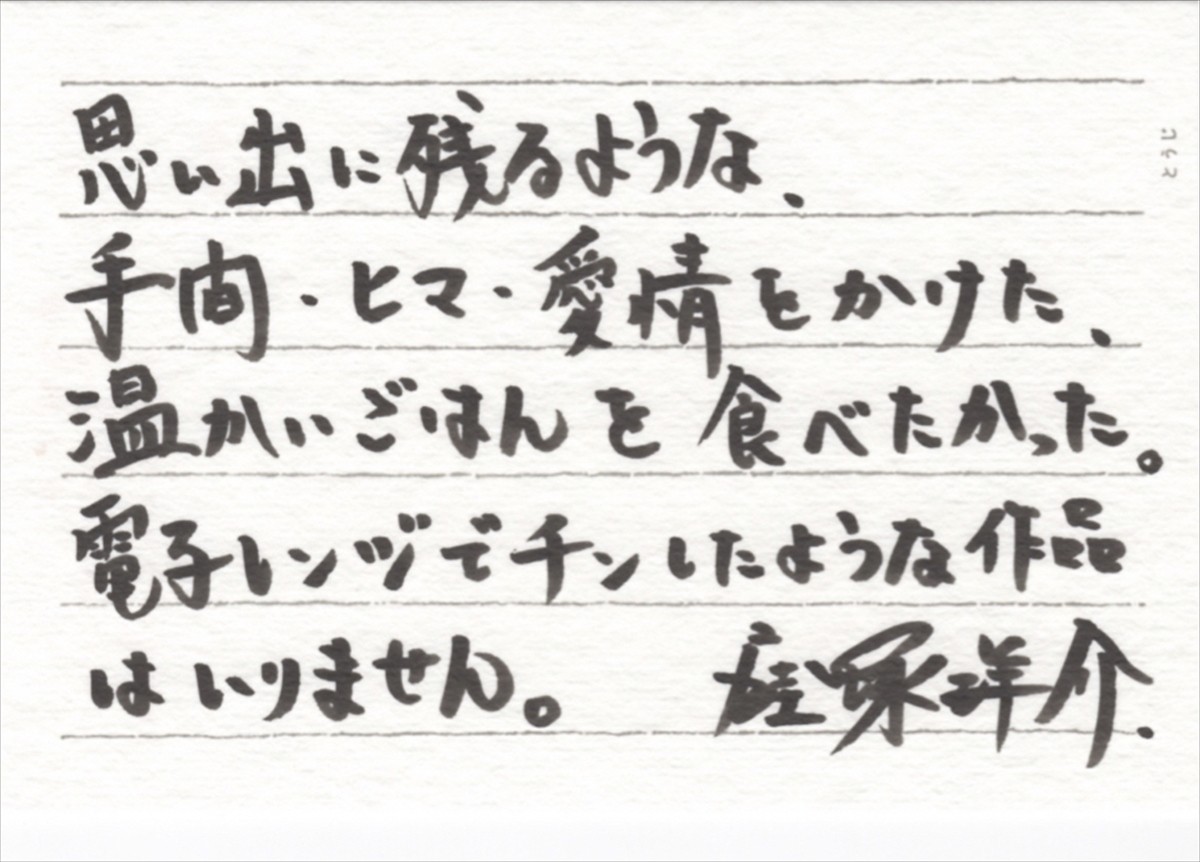 思い出に残るような、
手間・ヒマ・愛情をかけた、
温かいごはんを食べたかった。
電子レンジでチンしたような作品
はいりません。 庭塚洋介.